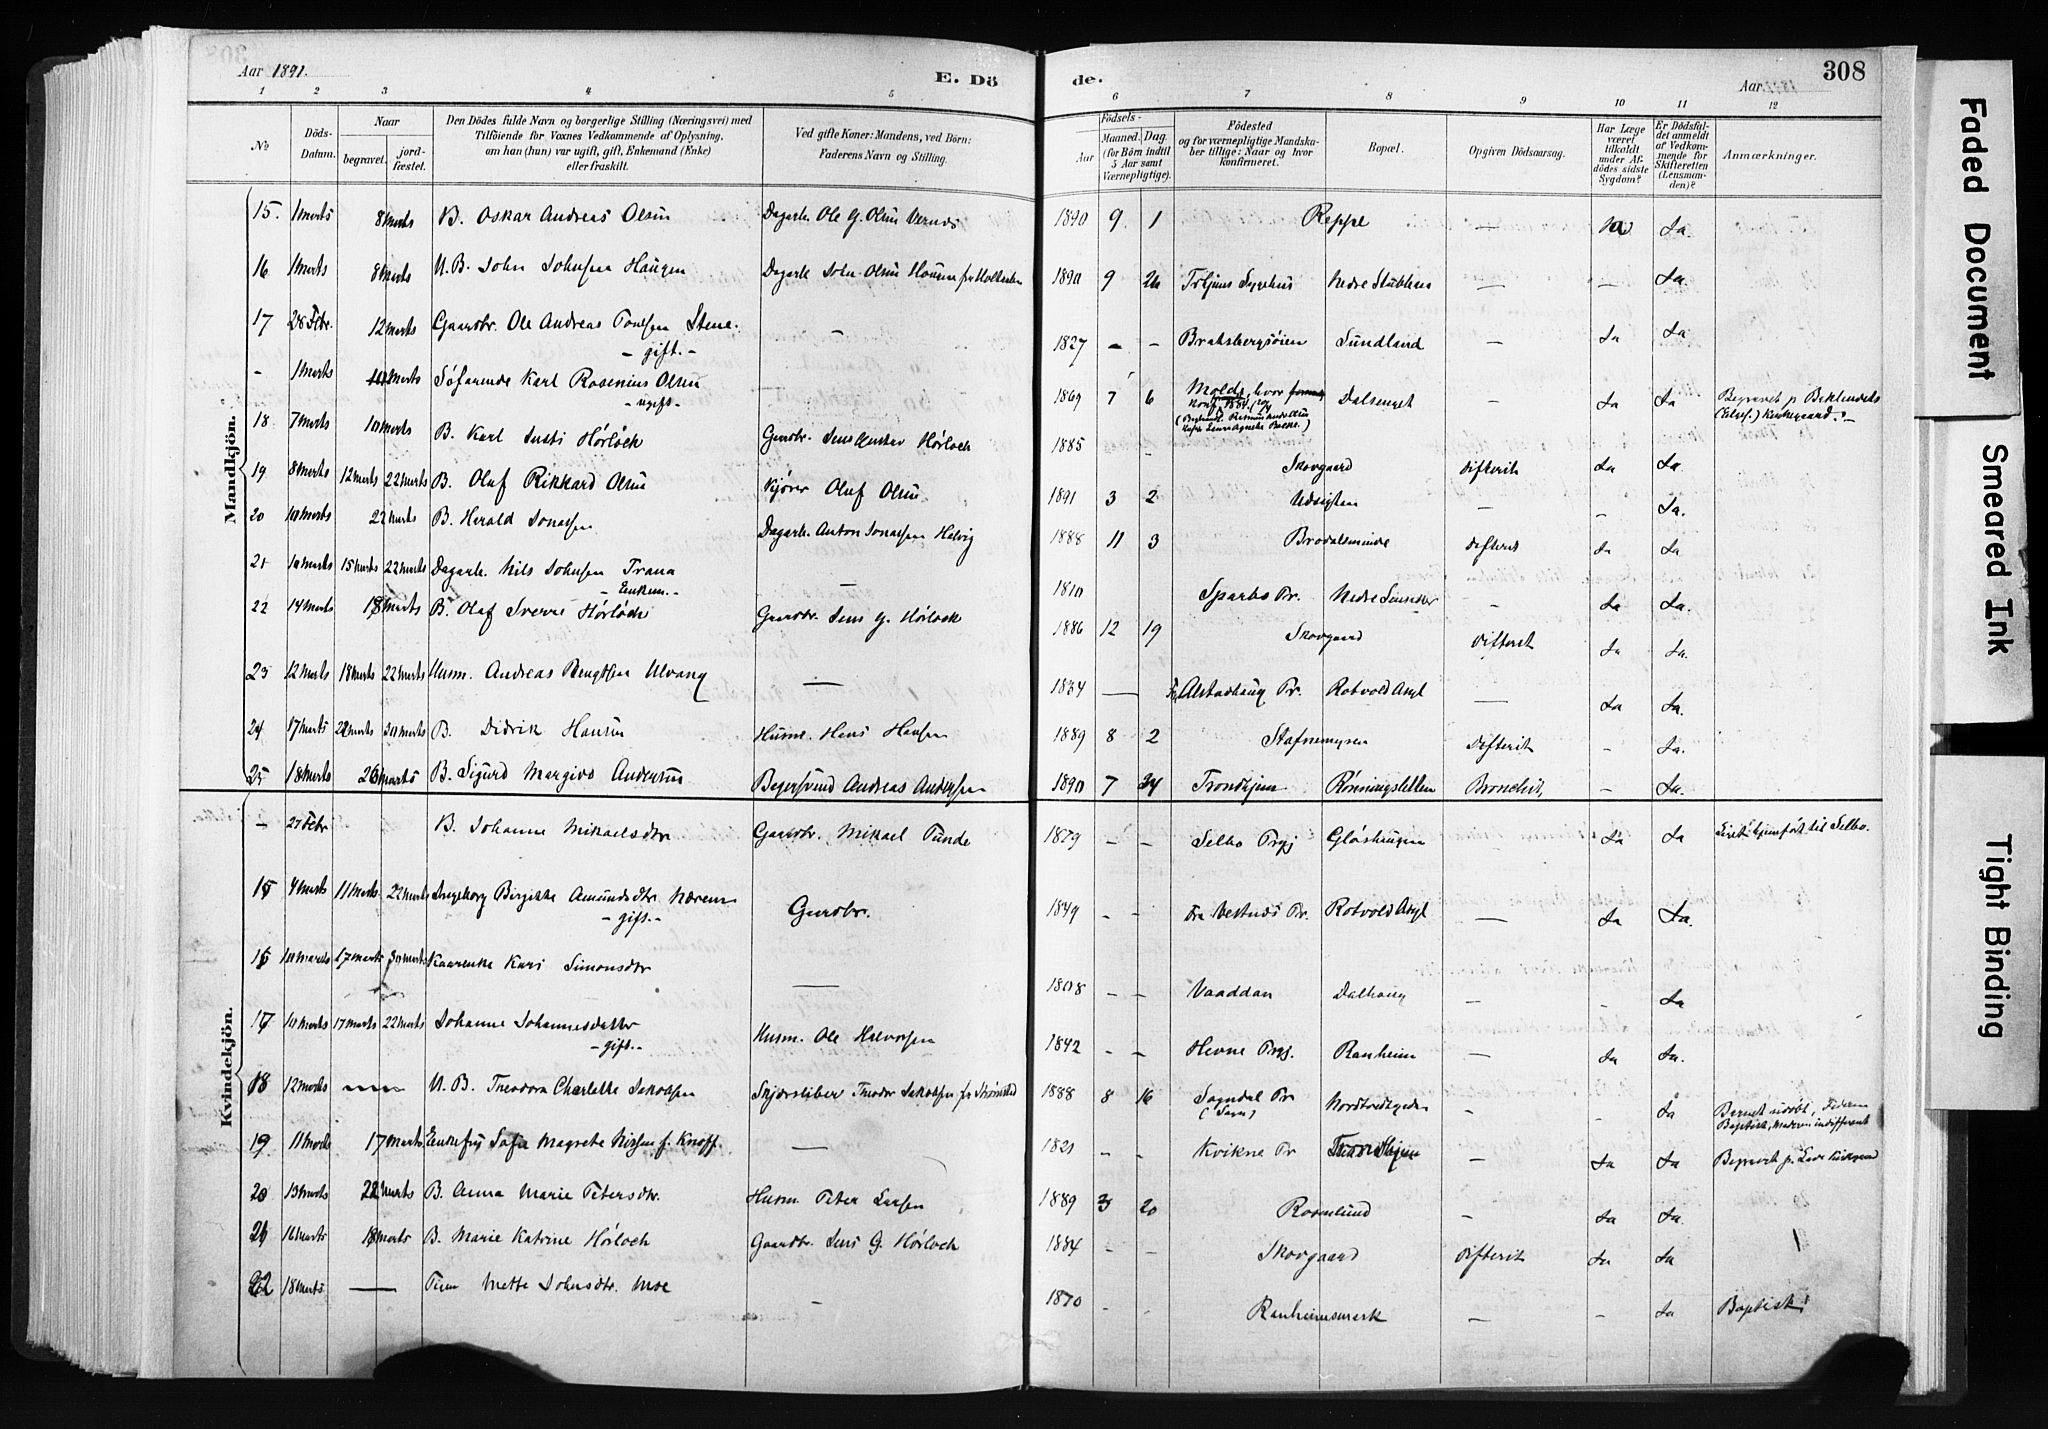 Aar 1891. E. Dö de. Aar 308
1 2 3 4 5 6 7 8 9 10 11 12
№
Döds-Datum.
Naar
begravet. jordfæstet.
Den Dödes fulde Navn og borgerlige Stilling (Næringsvei) med
Tilföiende for Voxnes Vedkommende af Oplysning,
om han (hun) var ugift, gift, Enkemand (Enke)
eller fraskilt.
Ved gifte Koner: Mandens, ved Börn:
Faderens Navn og Stilling.
Födsels-
Aar Maaned. Dag.
(for Börn indtil
5 Aar samt
Værnepligtige).
Födested
og for værnepligtige Mandska-
ber tillige: Naar og hvor
konfirmeret.
Bopæl.
Opgiven Dödsaarsag.
Har Læge
været
tilkaldt
under Af-
dödes sidste
Sygdom?
Er Dödsfal-
det anmeldt
af Vedkom-
mende for
Skifteretten
(Lensman-
den)?
Anmærkninger.
Mandkjön.
15. 1 Marts 8 Marts B. Oskar Andreas Olsen Dagarb. Ole G. Olsen 1890 9 1 Reppe — Ja.
16 1 Marts 8 Marts U.B. John Johnsen Haugen Dagarb. John Olsen 1890 9 Trhjems Sygehus Nedre — — Ja.
17 28 Febr. 12 Marts Gaardbr. Ole Andreas Stene. — 1827 - - Bratsbergsöien Sundland — Ja Ja
- gift. -
- 1 Marts Marts Söfarende Karl Rosenius Olsen 1869 7 6 Molde, hvor Dalsenget Ja Ja Begravet p.
- ugift - Kirkegaard. -
18 7 Marts 10 Marts B. Karl Hörlöck Gaardbr. Jens Gustav Hörloch 1885 - Skovgaard Difterit Ja Ja.
19 8 Marts 12 Marts 22 Marts B. Oluf Rikkard Olsen Kjörer Oluf Olsen 1891 3 2 Udsigten — - Ja.
20 10 Marts 22 Marts B. Herald Jonassen Dagarb. Anton Jonassen Helvig 1888 11 3 Brodalsminde Difterit Ja Ja
21 10 Marts 15 Marts 22 Marts Dagarb. Nils Johnsen Trana — 1810 Sparbo Pr. Nedre - Ja Ja.
- Enkem. -
22 14 Marts 18 Marts B. Olaf Sverre Hörlöck Gaardbr. Jens G. Hörlock 1886 12 19 Skovgaard Difterit Ja Ja.
23 12 Marts 18 Marts 22 Marts Husm. Andreas Bengtsen Ulvang — 1834 — Alstadhaug Pr. Rotvold Asyl — Ja Ja.
24 17 Marts 22 Marts 30 Marts B. Didrik Hansen Husm. Hans Hansen 1889 8 2 Stafnemyren Difterit - Ja.
25 18 Marts 26 Marts B. Sigurd Andersen Bagersvend Andreas Andersen 1890 7 24 Trondhjem Rönningsletten Bronchit, - Ja.
Kvindekjön.
- 27 Febr B. Johanne Mikaelsdtr Gaardbr. Mikael 1879 - - Selbo Prgj Glöshaugen Ja Ja hjemfört til Selbo.
15 4 Marts 11 Marts 22 Marts Ingeborg Birgitte Amundsdtr. Gaardbr. 1849 - - Fra Vestnæs Pr. Rotvold Asyl — Ja Ja.
- gift. -
16 10 Marts 17 Marts 30 Marts Kaarenke Kari Simonsdtr — 1808 - - Vaaddan Dalhaug - - Ja
17 10 Marts 17 Marts 22 Marts Johanne Johannesdatter Husm. Ole Halvorsen 1842 - - Hevne Prgj. Ranheim - Ja Ja.
- gift. -
18 12 Marts — U.B. Theodora Charlotte Jakobsen Skjærsliber Theodor Jakobsen 1888 8 16 Sogndal Pr - - Ja Barnet udöbt, Faderen
Baptist, Moderen indifferent
19 11 Marts 17 Marts Enkefru Sofie Magrete Nissen f. Knoff. — 1821 - - Kvikne Pr Trondhjem - Ja Ja Begravet p. Lade Kirkegaard
20 13 Marts 22 Marts B. Anna Marie Petersdtr. Husm. Peter Larsen 1889 3 20 Rosenlund - Ja Ja.
21 16 Marts 18 Marts B. Marie Katrine Hörloch Gaardbr. Jens G. Hörloch 1884 - - Skovgaard Difterit Ja Ja
22 18 Marts — Mette Johnsdtr. Moe - 1870 - - Ranheimsmark - - Ja Baptist
Faded Document
Smeared Ink
Tight Binding